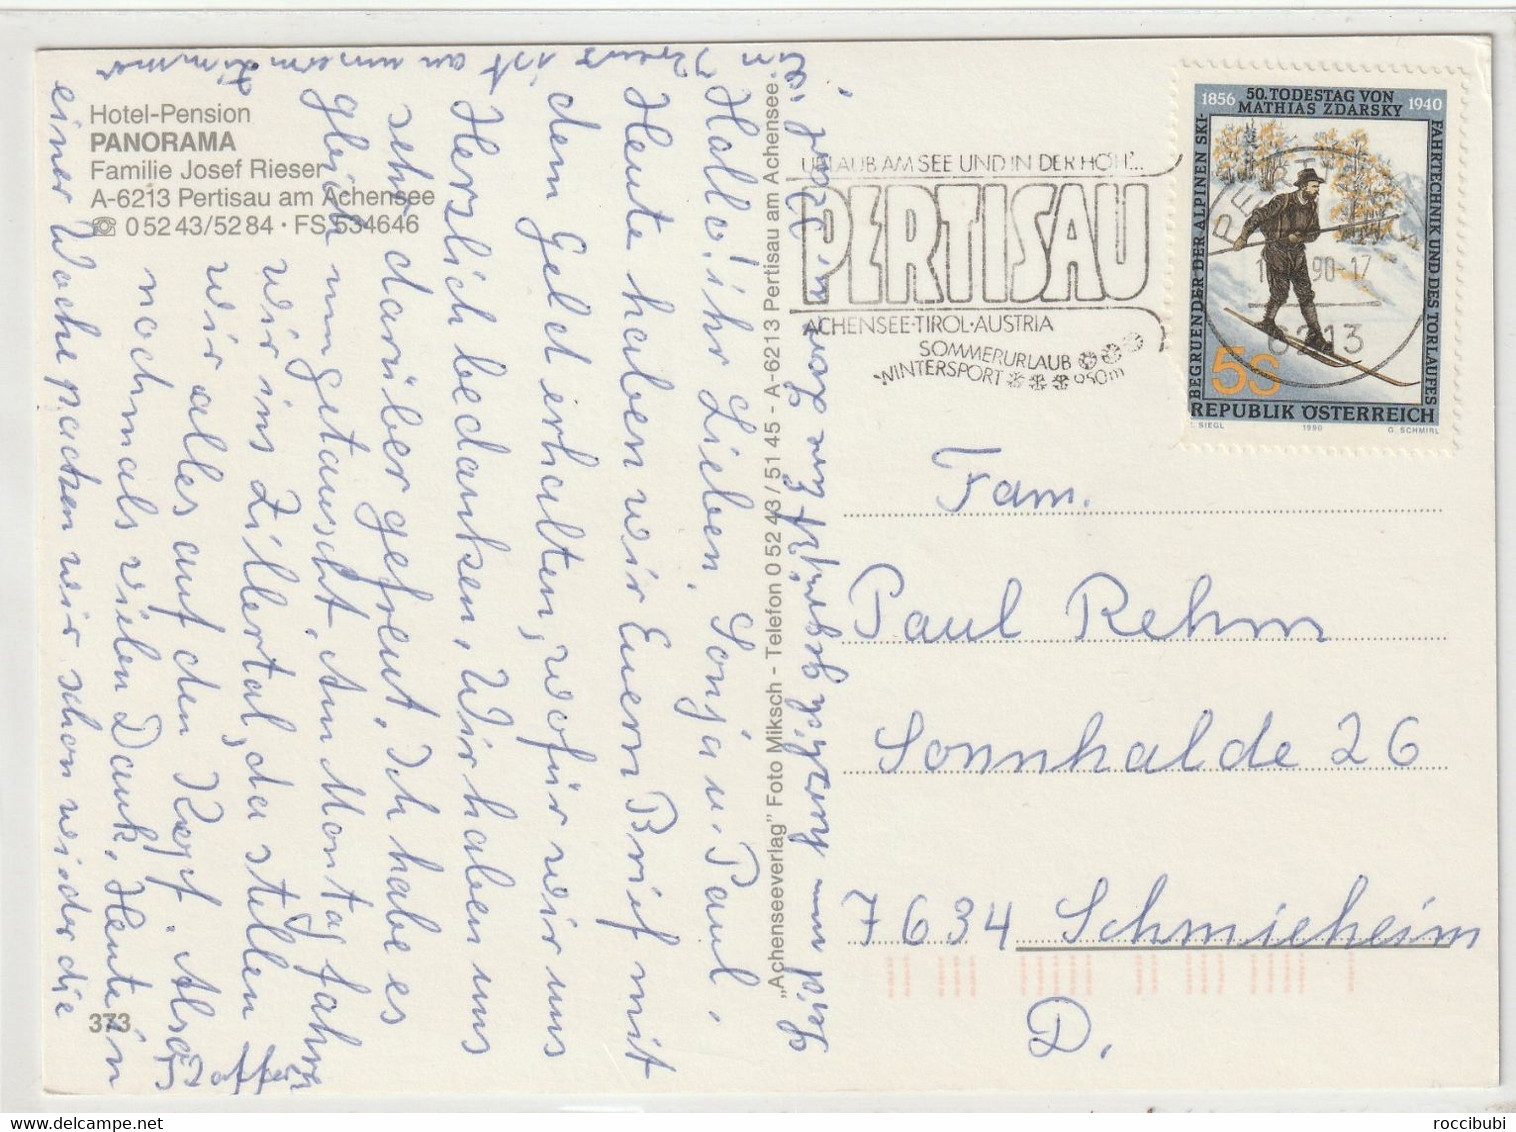 Hotel-Pension
PANORAMA
Familie Josef Rieser
A-6213 Pertisau am Achensee
☎ 0 52 43/52 84 · FS 534646
373
"Achenseeverlag" Foto Miksch - Telefon 0 52 43 / 51 45 - A-6213 Pertisau am Achensee.
Hallo! ihr Lieben, Sonja u. Paul,
Heute haben wir Euern Brief mit
dem Geld erhalten, wofür wir uns
Herzlich bedanken, Wir haben uns
sehr darüber gefreut. Ich habe es
gleich umgetauscht. Am Montag fahren
wir ins Zillertal, da stellen
wir alles auf den Kopf. Also
nochmals vielen Dank. Heute in
einer Woche packen wir schon wieder die
Koffer
Kreuz ist an unserm Zimmer
Seid nun herzlich gegrüßt von
URLAUB AM SEE UND IN DER HÖH'...
PERTISAU
ACHENSEE·TIROL·AUSTRIA
SOMMERURLAUB
WINTERSPORT 950m
PERTISAU
90-17
6213
1856 50. TODESTAG VON MATHIAS ZDARSKY 1940
BEGRUENDER DER ALPINEN SKI-
FAHRTECHNIK UND DES TORLAUFES
5S
REPUBLIK ÖSTERREICH
SIEGL 1990 G. SCHMIRL
Fam.
Paul Rehm
Sonnhalde 26
7634 Schmieheim
D.
roccibubi